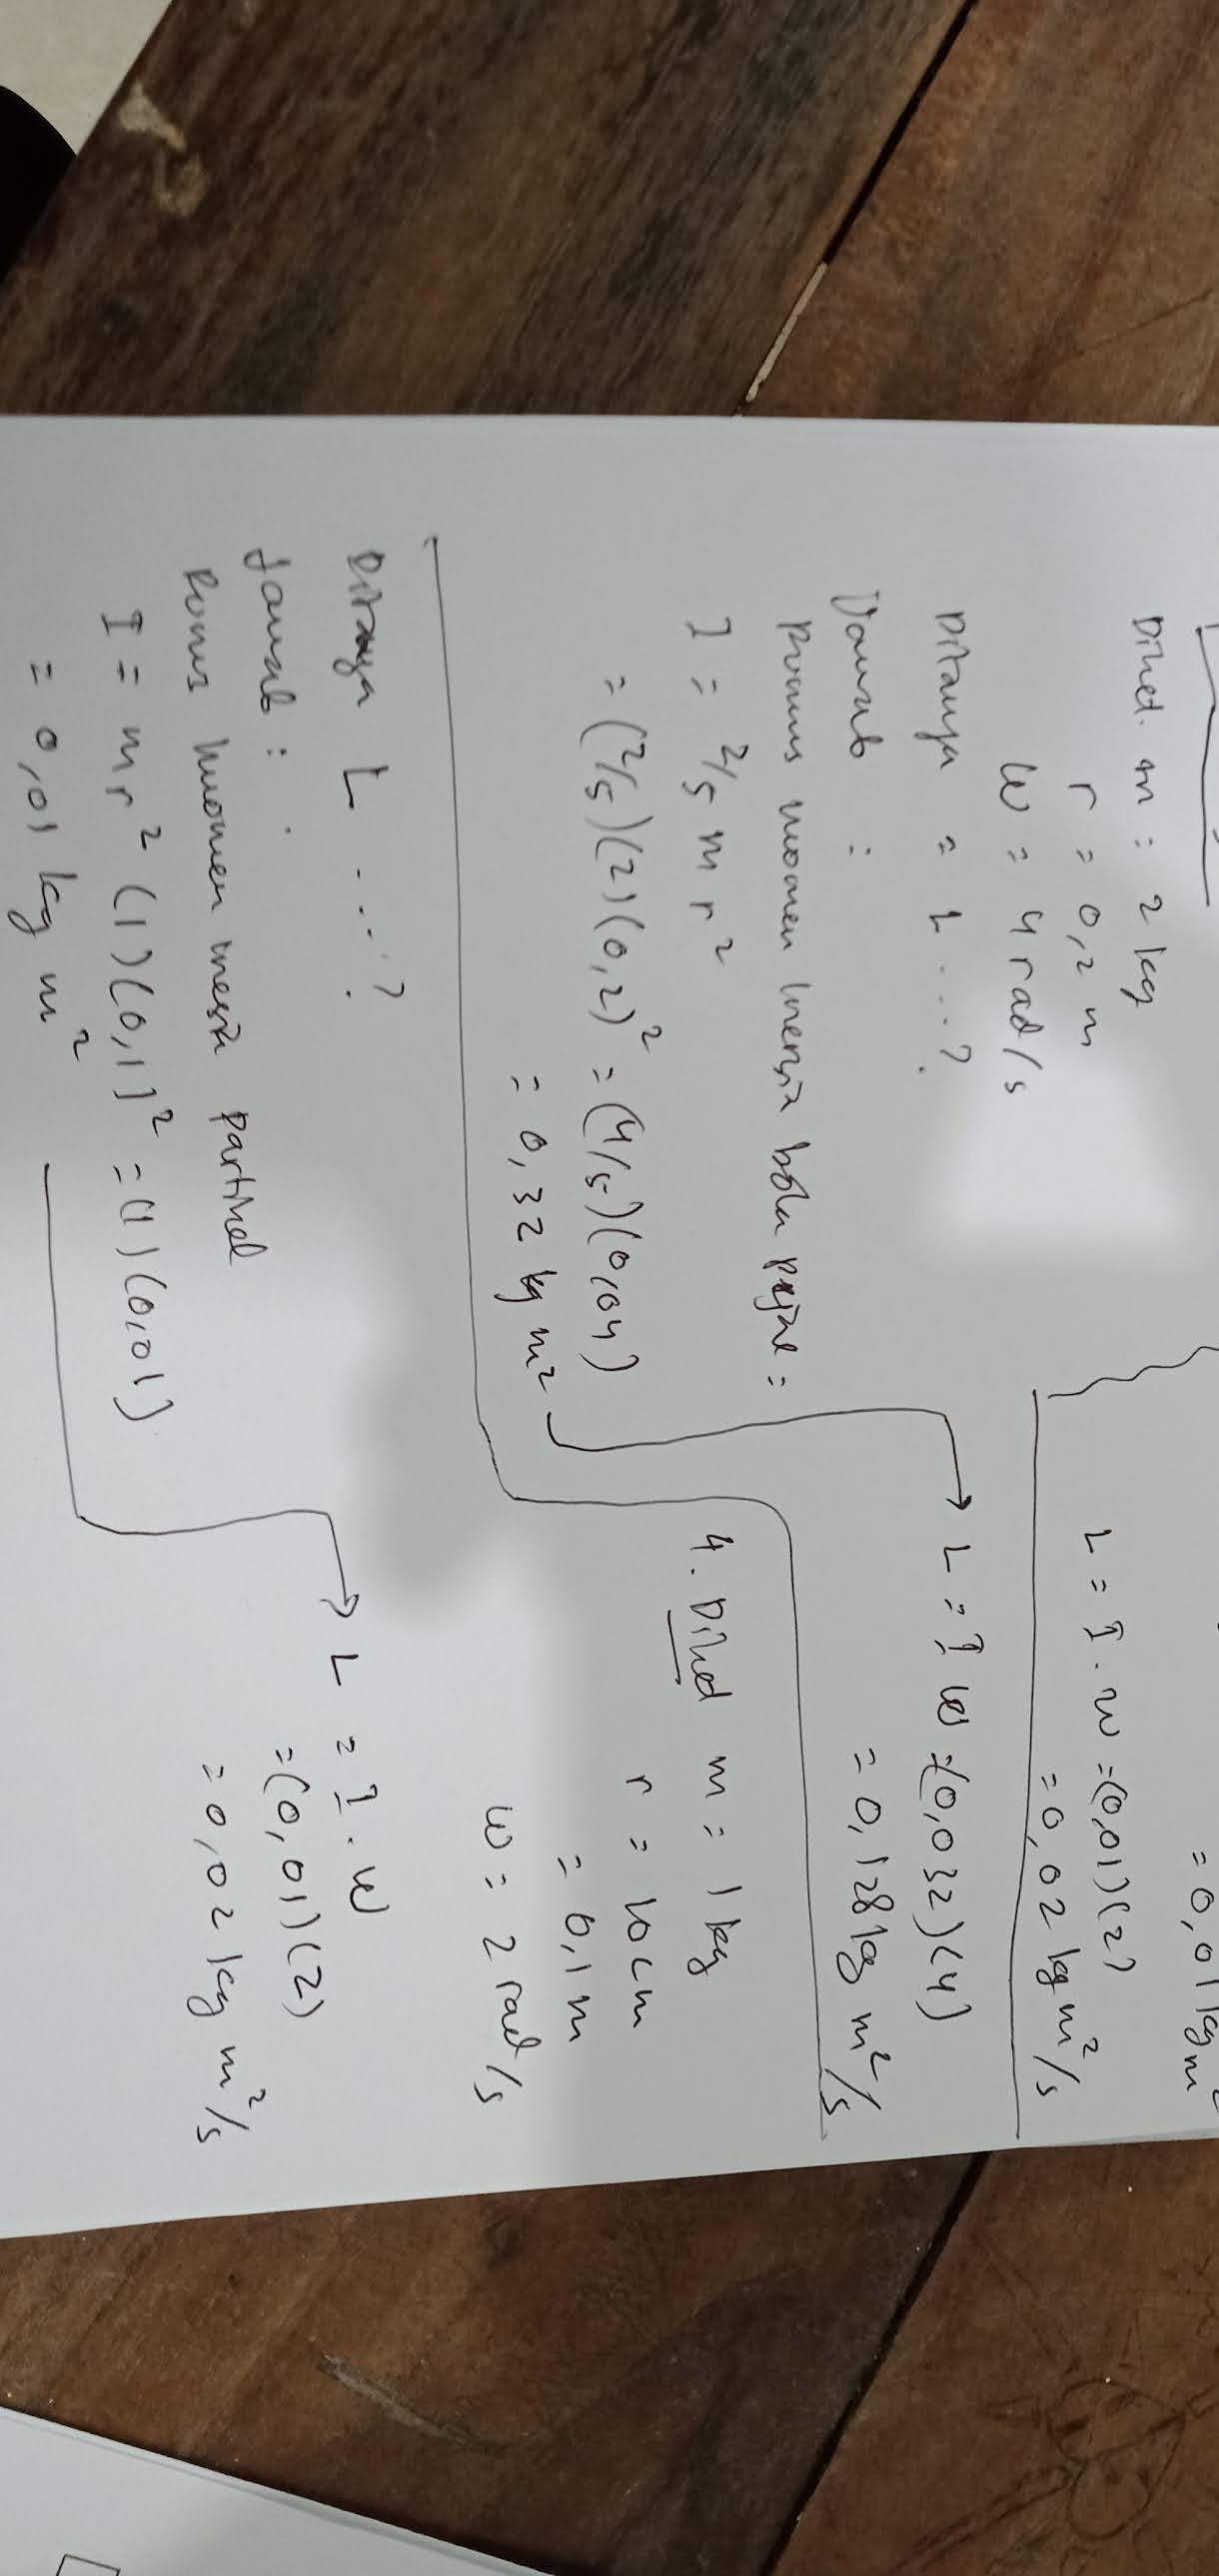 = 0,01 kg m²
L = I . w = (0,01)(2)
= 0,02 kg m²/s
Diket. m : 2 kg
r = 0,2 m
W = 4 rad/s
Ditanya = L ...?
Jawab :
Rumus momen inersia bola pejal =
I = 2/5 m r²
= (2/5)(2)(0,2)² = (4/5)(0,04)
= 0,32 kg m²
L = I w = (0,032)(4)
= 0,128 kg m²/s
4. Diket m = 1 kg
r = 10 cm
= 0,1 m
w = 2 rad/s
Ditanya L ...?
Jawab :
Rumus momen inersia partikel
I = m r² (1)(0,1)² = (1)(0,01)
= 0,01 kg m²
L = I . w
= (0,01)(2)
= 0,02 kg m²/s